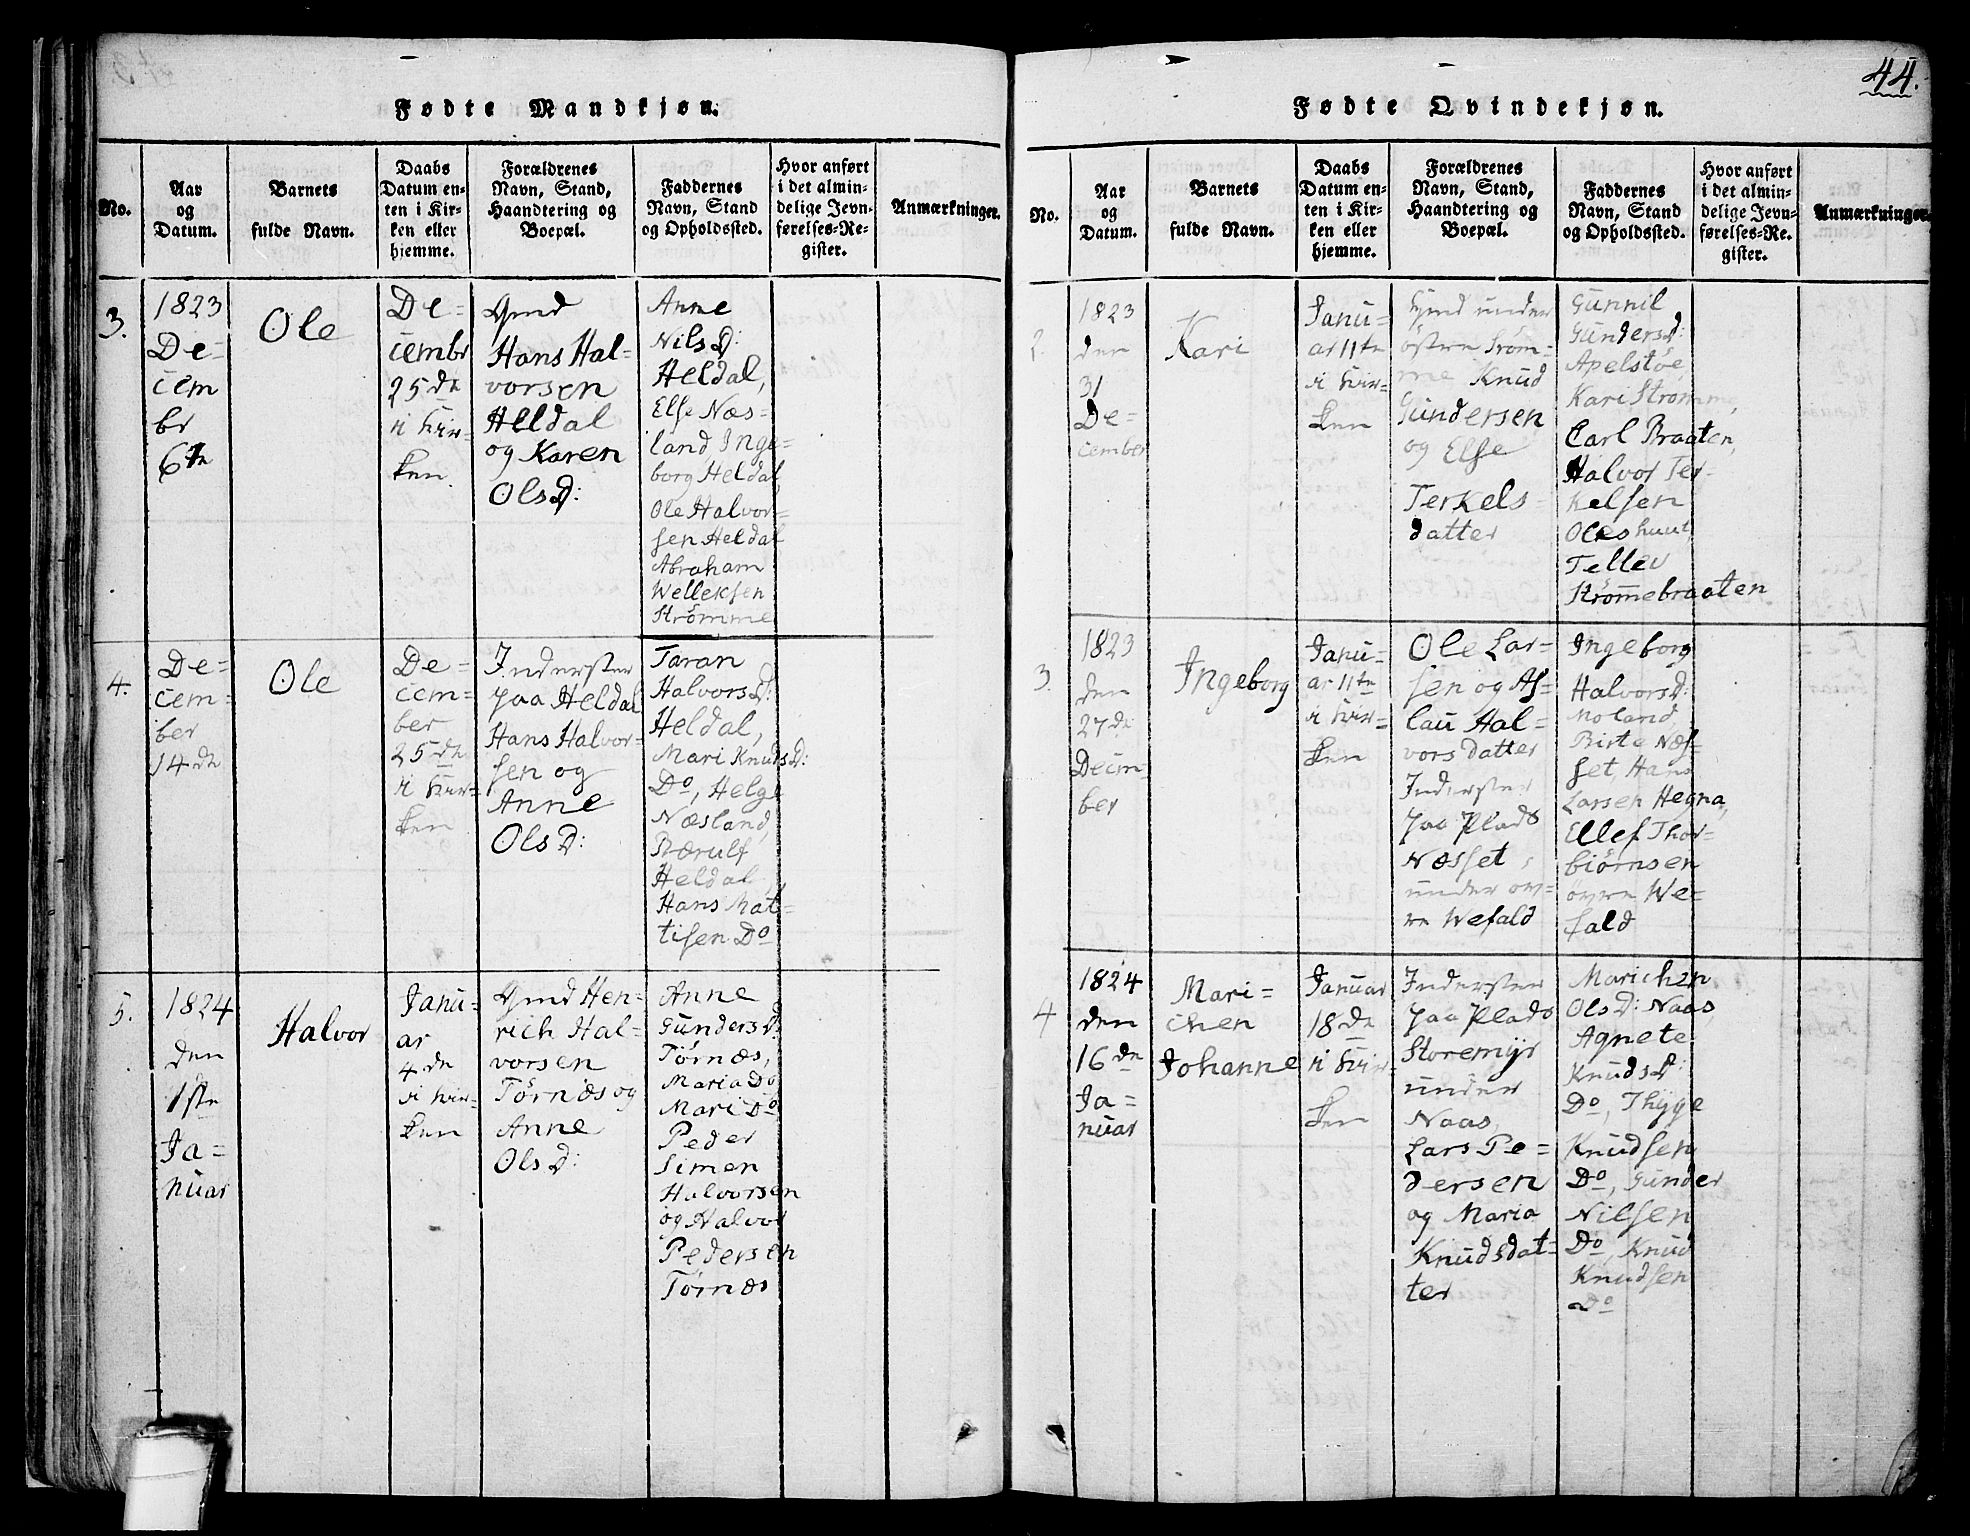 44.
Fødte Mandkjøn.
No.
Aar
og
Datum.
Barnets
fulde Navn.
Daabs
Datum en-
ten i Kir-
ken eller
hjemme.
Forældrenes
Navn, Stand,
Haandtering og
Boepæl.
Faddernes
Navn, Stand
og Opholdssted.
Hvor anført
i det almin-
delige Jevn-
førelses-Re-
gister.
Anmærkninger.
3.
1823
De=
cem
br
6te
Ole
De=
cembr
25de
i Kir=
ken.
Gmd
Hans Hal=
vorsen
Heldal
og Karen
OlsD:
Anne
NilsD:
Heldal,
Else Næs=
land Inge=
borg Heldal,
Ole Halvor=
sen Heldal
Abraham
Welleksen
Strömme
4.
De=
cem=
ber
14de
Ole
De=
cem=
ber
25de
i Kir=
ken
Inderster
paa Heldal
Hans Halvor=
sen og
Anne
OlsD:
Taran
HalvorsD:
Heldal,
Mari KnudsD:
Do, Helge
Næsland,
Heldal
Hans Mat=
tisen Do
5.
1824
den
1ste
Ja=
nuar
Halvor
Janu=
ar
4de
i Kir=
ken
Gmd Hen=
rich Hal=
vorsen
Törnæs og
Anne
OlsD:
Anne
GundersD:
Törnæs,
Maria Do
Mari Do
Peder
Simen
Halvorsen
og Halvor
Pedersen
Törnæs
Fødte Qvindekjøn.
No.
Aar
og
Datum.
Barnets
fulde Navn.
Daabs
Datum en-
ten i Kir-
ken eller
hjemme.
Forældrenes
Navn, Stand,
Haandtering og
Boepæl.
Faddernes
Navn, Stand
og Opholdssted.
Hvor anført
i det almin-
delige Jevn-
førelses-Re-
gister.
Anmærkninger.
2.
1823
den
31
De=
cember
Kari
Janu=
ar 11te
i Kir=
ken
Hmd under
östre Ström=
me Knud
Gundersen
og Else
Terkels=
datter
Gunnil
GundersD:
Apelstöe,
Kari Strömme,
Carl Braaten,
Halvor Ter=
kelsen
Oleshuut
Tellev
Strömebraaten
3.
1823
den
27de
Decem=
ber
Ingeborg
Janu=
ar 11te
i Kir=
ken
Ole Lar=
sen og As=
lau Hal=
vorsdatter
Inderster
paa Plads
Næsset,
under öv=
re Wefald
Ingeborg
HalvorsD:
Moland,
Birte Næs=
set, Hans
Larsen Hegna,
Ellef Thor=
biörnsen
övre We=
fald
4
1824
den
16de
Ja=
nuar
Mari=
chen
Johanne
Januar
18de
i Kir=
ken
Inderster
paa Plads
Storemyr
under
Naas,
Lars Pe=
dersen
og Maria
Knudsdat=
ter
Marichen
OlsD: Naas,
Agnete
KnudsD:
Do, Thyge
Knudsen
Do, Gunder
Nilsen
Do, Knud
Knudsen
Do